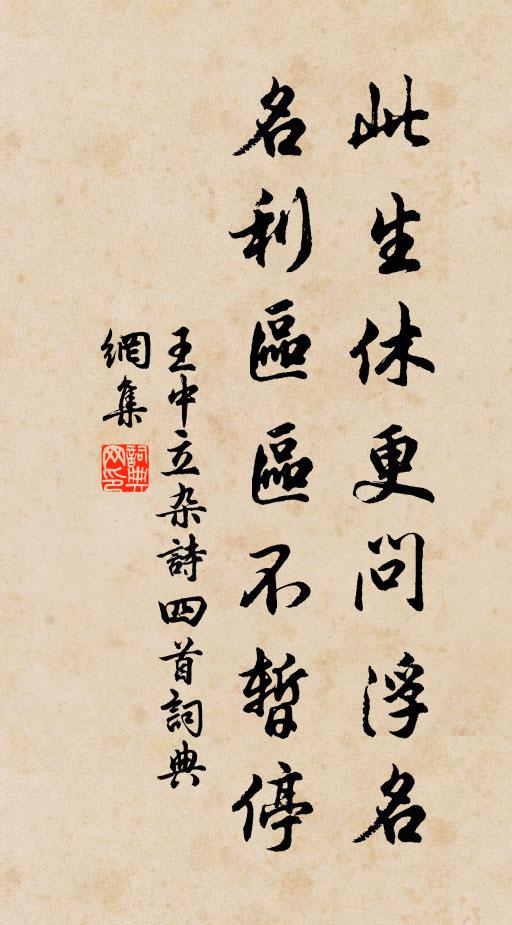 此生休更問浮名
名利區區不暫停
王中立杂詩四首詞典
網集
詞典
网印